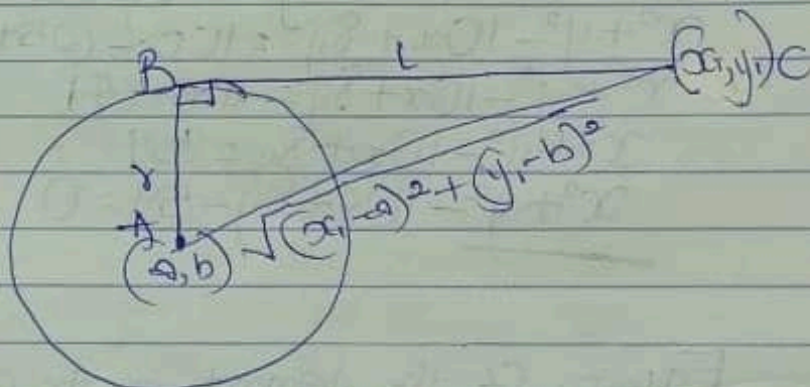 B L (x₁, y₁) C
r
A
(a, b) √(x₁-a)² + (y₁-b)²